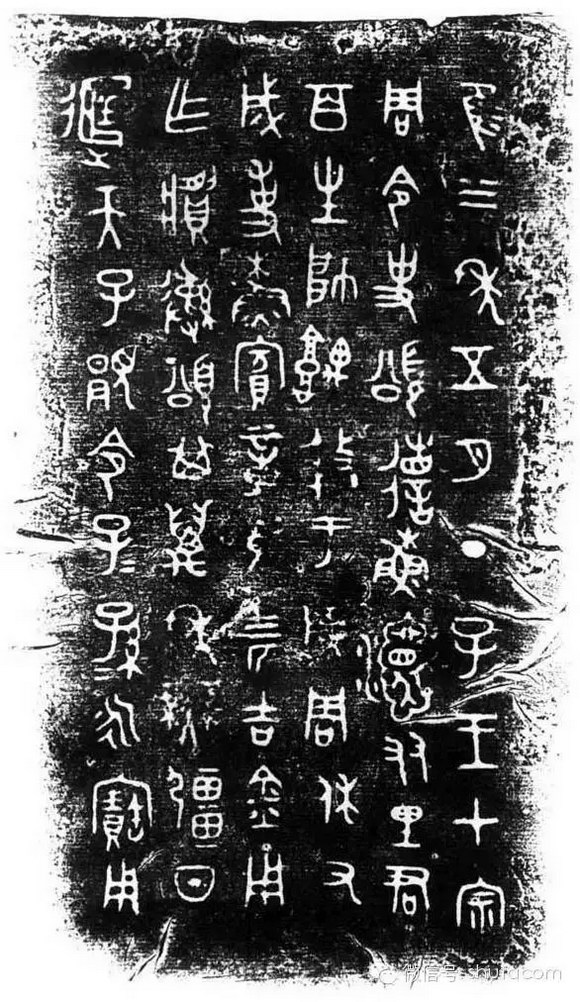 隹三年五月丁子王才宗
周令史頌省穌友里君
百生帥盩于成周休又
成事穌賓章馬四匹吉金用
乍彝頌其萬年無疆日
天子顯令子子孫孫永寶用
微信号: shufacom